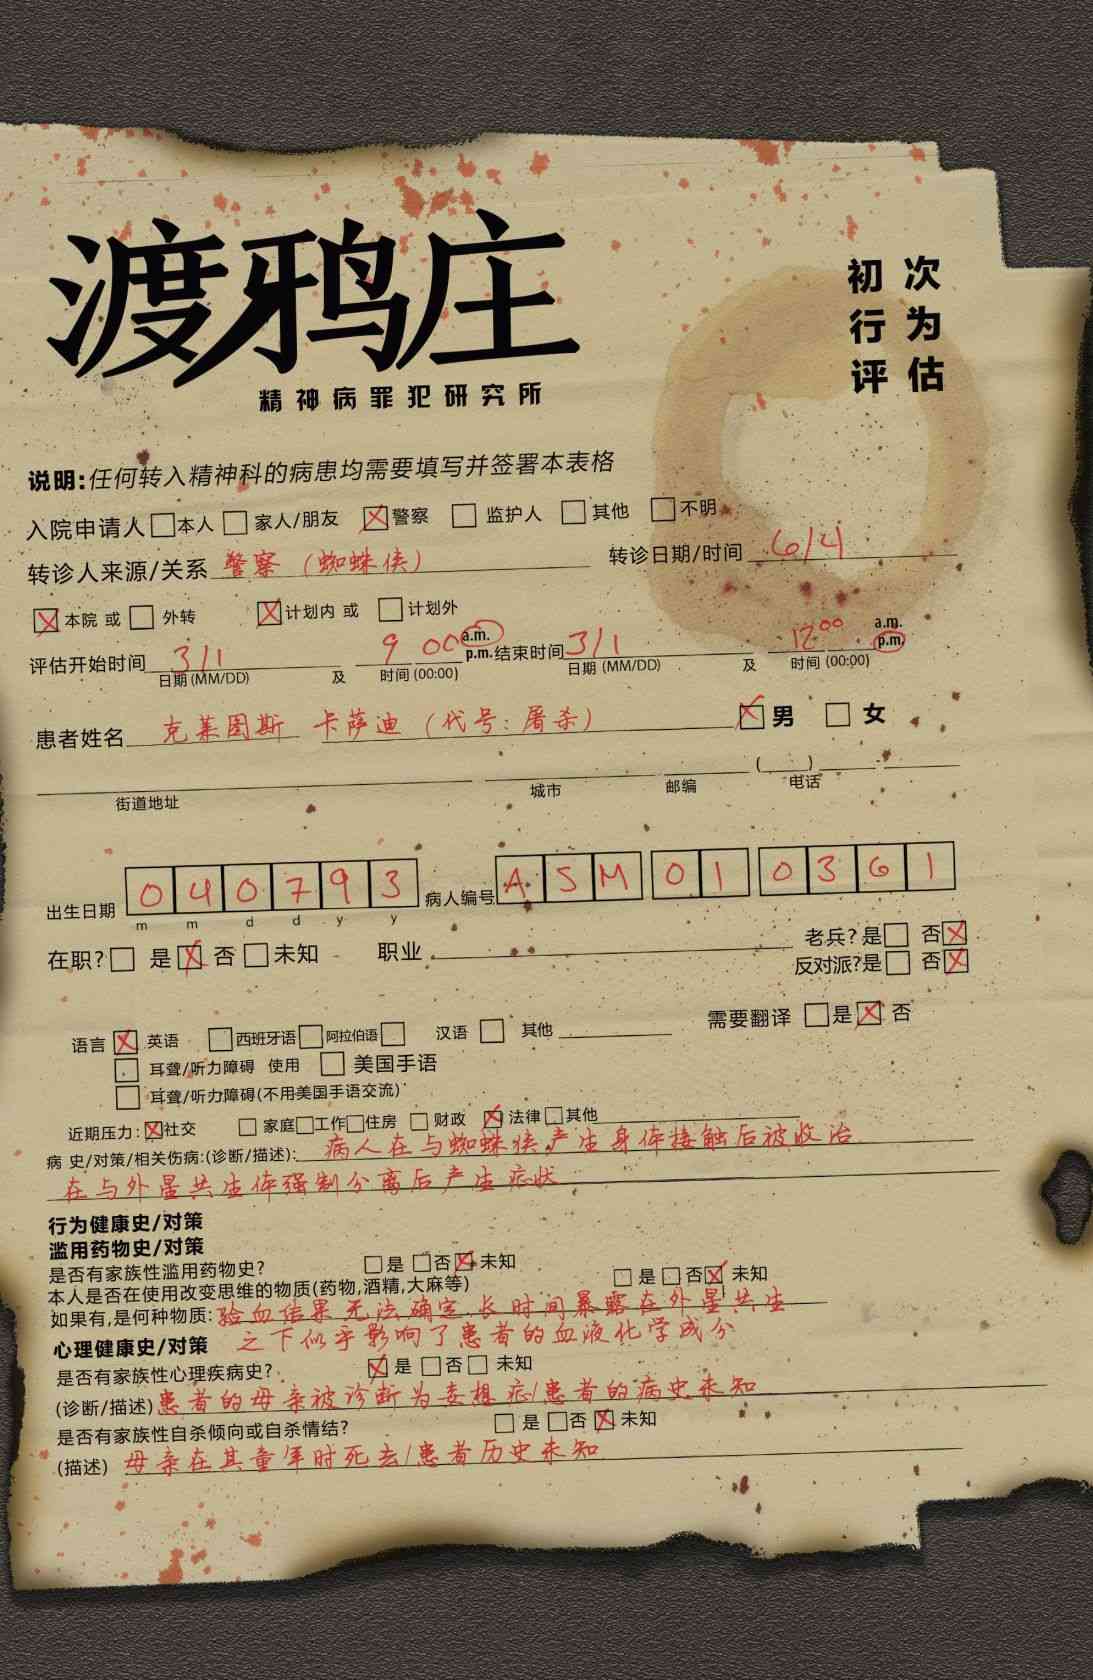 渡鸦庄
精神病罪犯研究所
初次
行为
评估
说明:任何转入精神科的病患均需要填写并签署本表格
入院申请人 本人 家人/朋友 警察 监护人 其他 不明
转诊人来源/关系 警察（蜘蛛侠） 转诊日期/时间 6/4
本院 或 外转 计划内 或 计划外
评估开始时间 3/1 9 00 a.m. p.m. 结束时间 3/1 12 00 a.m. p.m.
日期 (MM/DD) 及 时间 (00:00) 日期 (MM/DD) 及 时间 (00:00)
患者姓名 克莱图斯 卡萨迪（代号:屠杀） 男 女
街道地址 城市 邮编 ( ) 电话
出生日期 0 4 0 7 9 3 病人编号 A S M 0 1 0 3 6 1
m m d d y y
在职? 是 否 未知 职业 老兵? 是 否
反对派?是 否
语言 英语 西班牙语 阿拉伯语 汉语 其他 需要翻译 是 否
耳聋/听力障碍 使用 美国手语
耳聋/听力障碍(不用美国手语交流)
近期压力: 社交 家庭 工作 住房 财政 法律 其他
病 史/对策/相关伤病:(诊断/描述): 病人在与蜘蛛侠产生身体接触后被收治
在与外星共生体强制分离后产生症状
行为健康史/对策
滥用药物史/对策
是否有家族性滥用药物史? 是 否 未知
本人是否在使用改变思维的物质(药物,酒精,大麻等) 是 否 未知
如果有,是何种物质: 验血结果无法确定.长时间暴露在外星共生
之下似乎影响了患者的血液化学成分
心理健康史/对策
是否有家族性心理疾病史? 是 否 未知
(诊断/描述)患者的母亲被诊断为妄想症/患者的病史未知
是否有家族性自杀倾向或自杀情结? 是 否 未知
(描述) 母亲在其童年时死去/患者历史未知